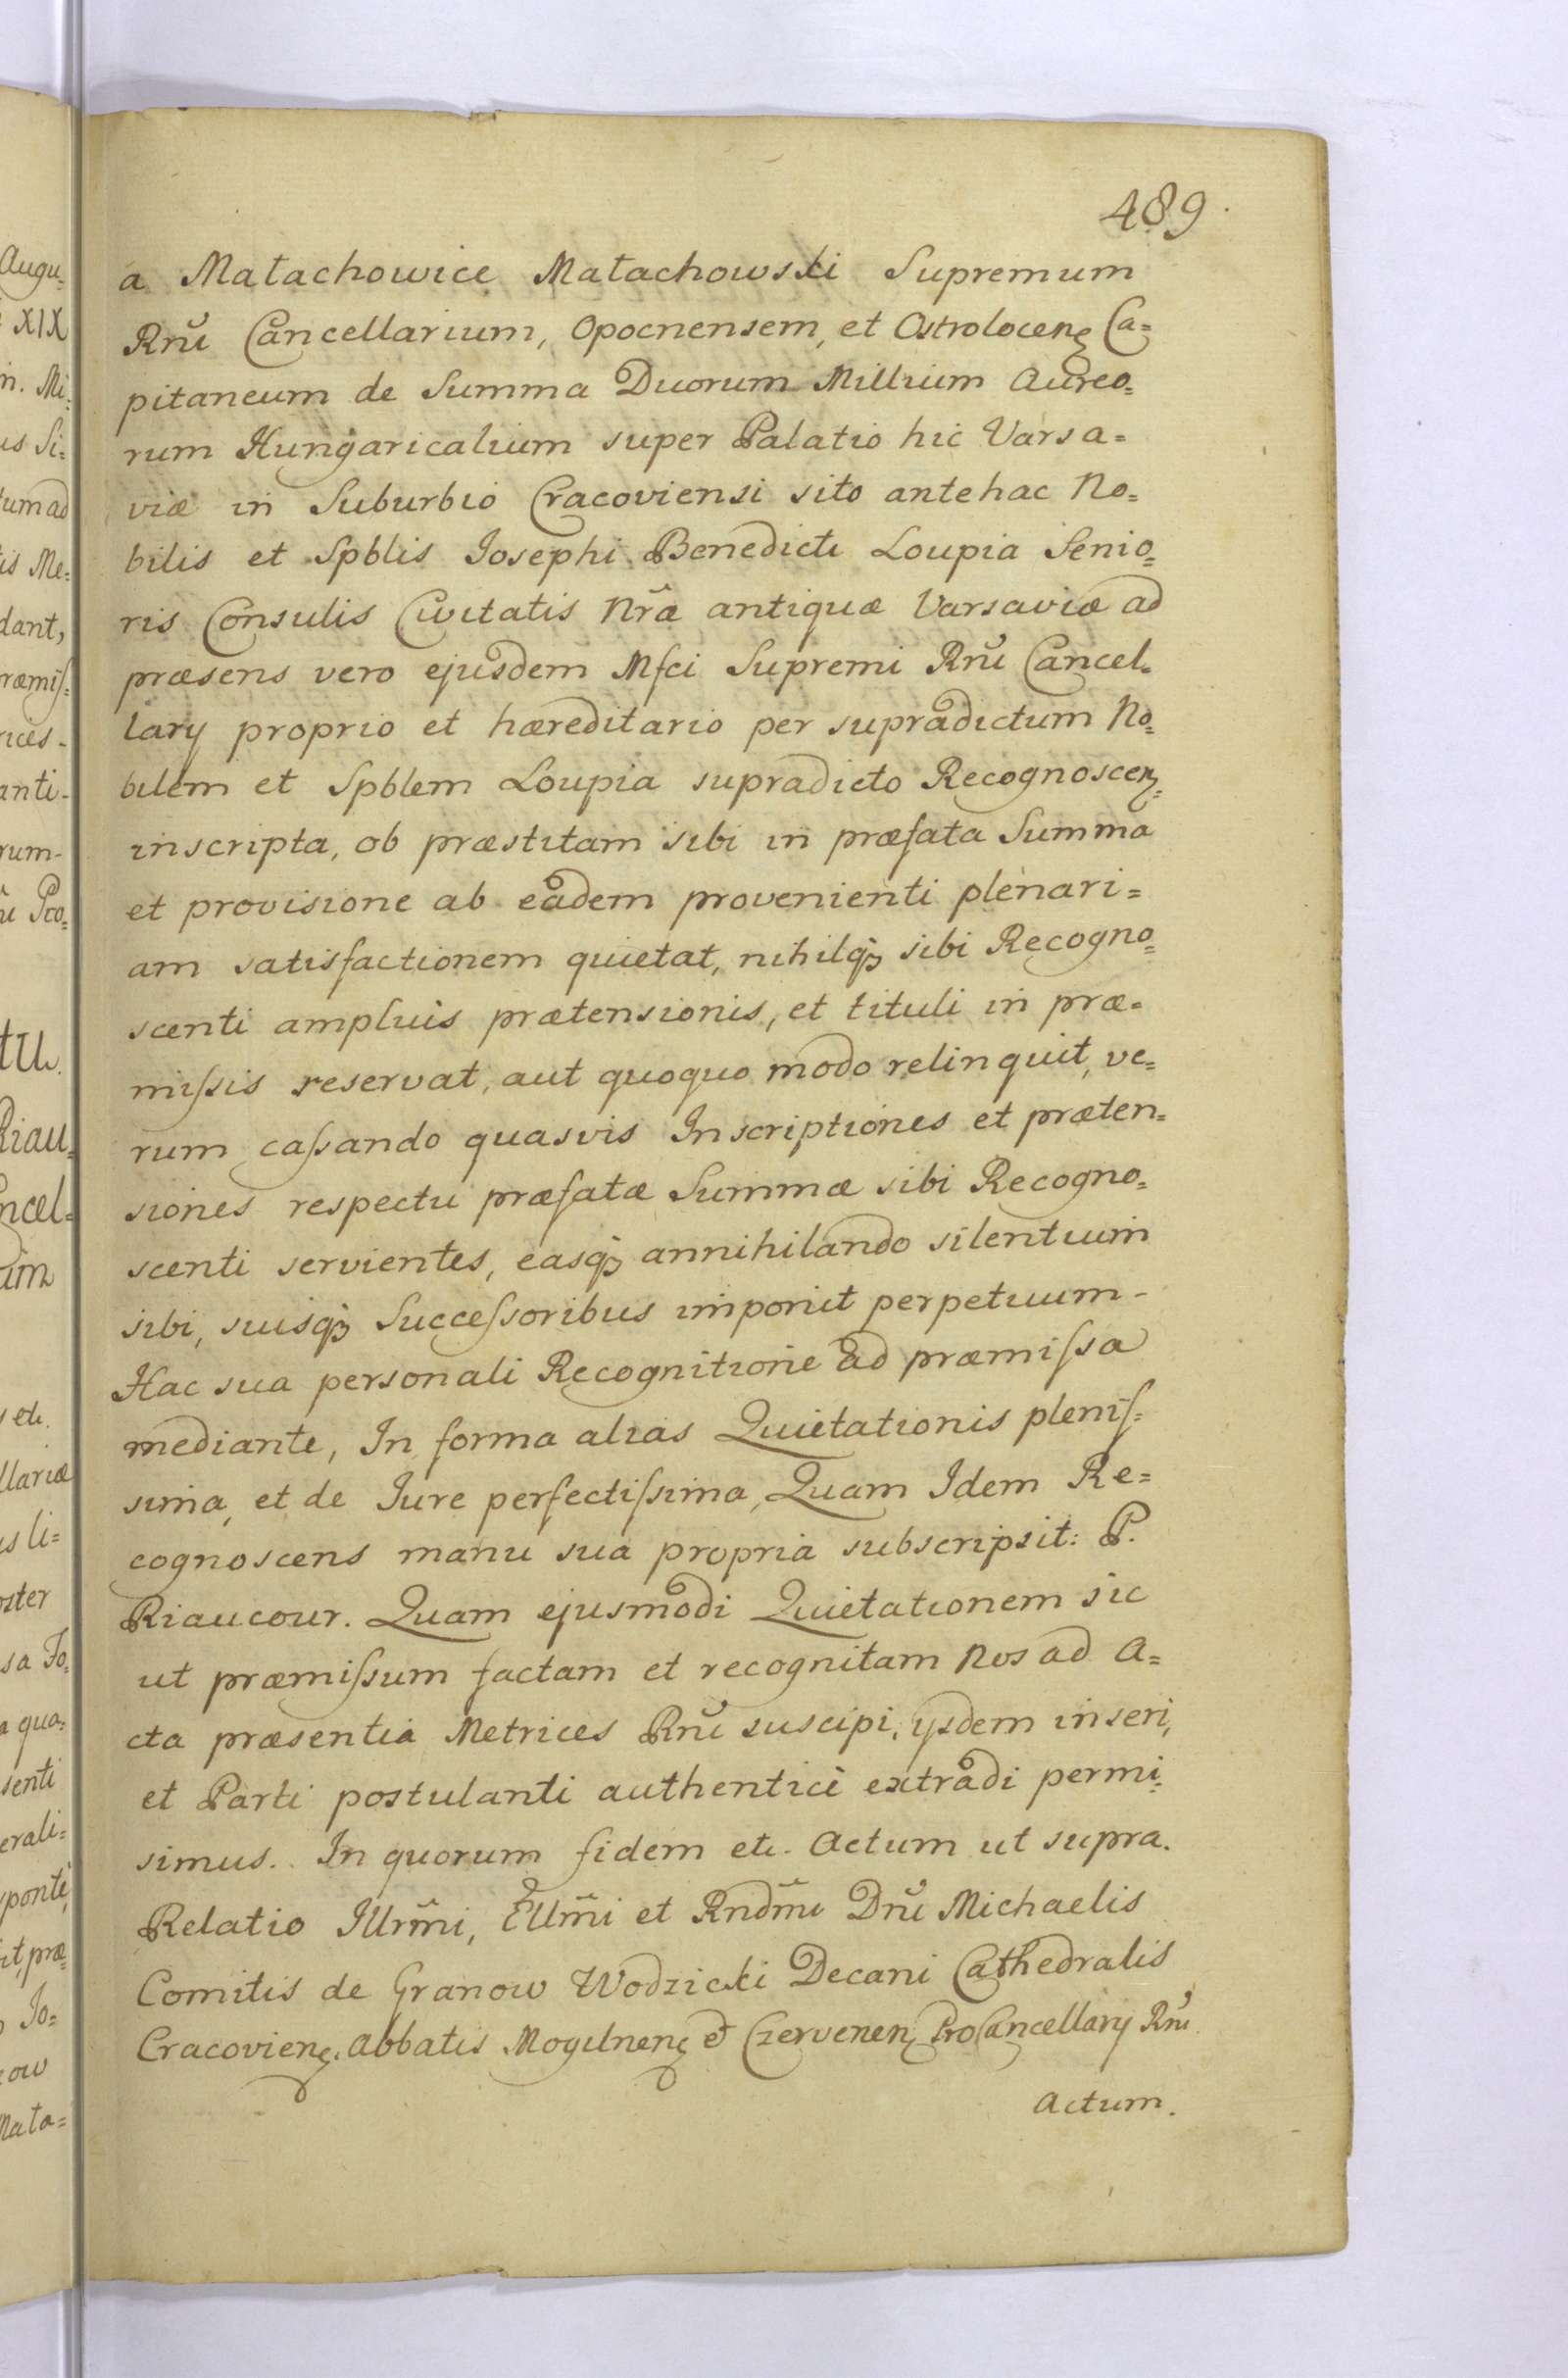 489.
a Małachowice Małachowski Supremum
Rnĩ Cancellarium, Opocnensem, et Ostroloceñ Ca=
pitaneum de Summa Duorum Millium Aureo=
rum Hungaricalium super Palatio hic Varsa=
viæ in Suburbio Cracoviensi sito antehac No=
bilis et Spblis Josephi Benedicti Loupia Senio=
ris Consulis Civitatis Nr̃æ antiquæ Varsaviæ ad
præsens vero ejusdem Mfci Supremi Rnĩ Cancel=
lary proprio et hæreditario per supradictum No=
bilem et Spblem Loupia supradicto Recognoscen=
inscripta, ob præstitam sibi in præfata Summa
et provisione ab eadem provenienti plenari=
am satisfactionem quietat, nihilq; sibi Recogno=
scenti amplius prætensionis, et tituli in præ=
mißis reservat, aut quoquo modo relinquit, ve=
rum caßando quasvis Inscriptiones et præten=
siones respectu præfatæ Summæ sibi Recogno=
scenti servientes, easq; annihilando silentium
sibi, suisq; Succeßoribus imponit perpetuum -
Hac sua personali Recognitione ad præmißa
mediante, In forma alias Quietationis pleniſ=
sima, et de Jure perfectißima, Quam Idem Re=
cognoscens manu sua propria subscripsit: P.
Riaucour. Quam ejusmodi Quietationem sic
ut præmißum factam et recognitam Nos ad A=
cta præsentia Metrices Rnĩ suscipi, ijsdem inseri,
et Parti postulanti authenticè extradi permi=
simus. In quorum fidem etc. Actum ut supra.
Relatio Illrm̃i, Ellm̃i et Rndm̃i Dnĩ Michaelis
Comitis de Granow Wodzicki Decani Cathedralis
Cracovieñ. Abbatis Mogilneñ et Czerveneñ ProCancellary Rnĩ
Actum.
Augu=
XIX
n. Mi=
us Si=
tum ad
is Me=
dant,
ræmiſ=
rices -
anti -
rum -
tu.
Riau=
ncel=
um
etc.
llariæ
us li=
oster
sa Jo=
a qua=
senti
erali=
sponte,
it, præ=
Jo=
cow
Mała=